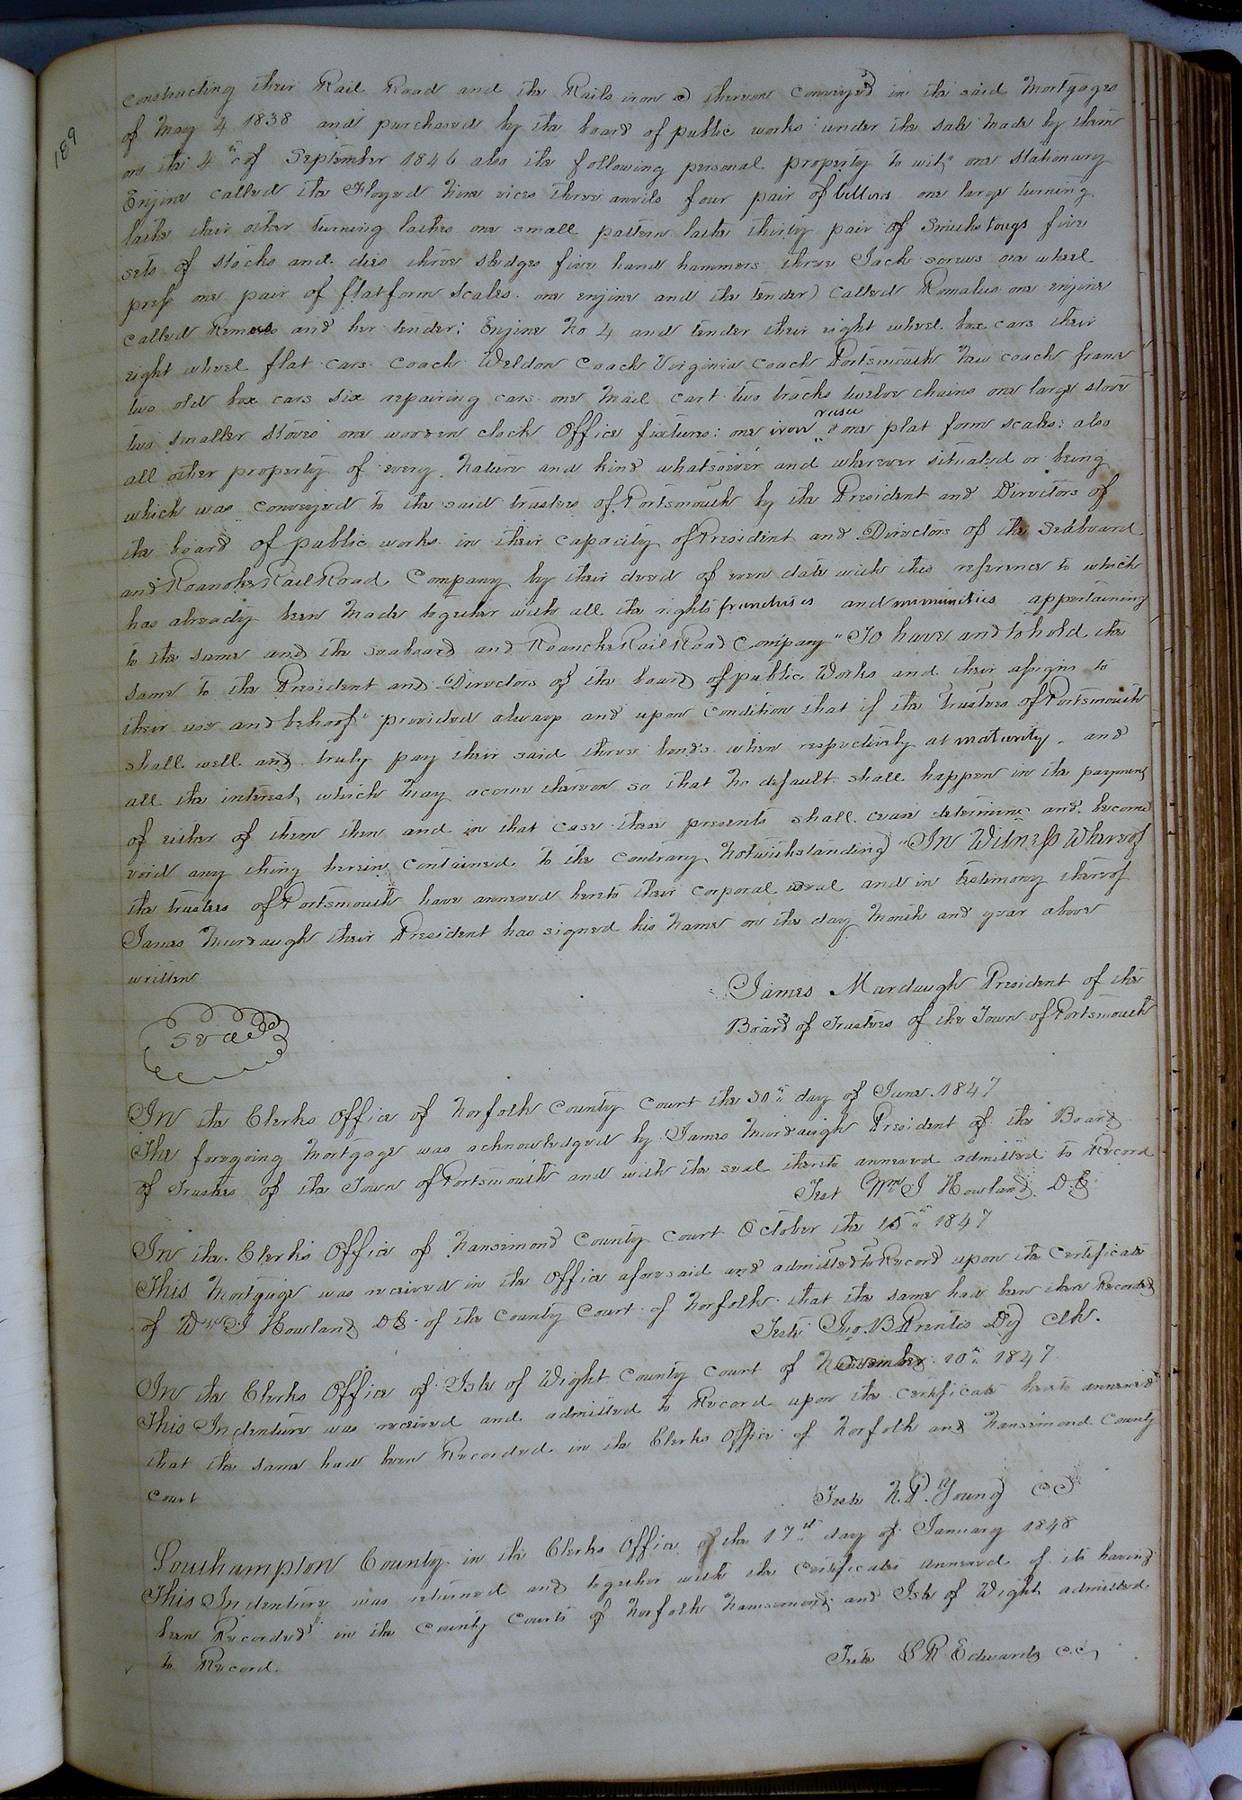 189
constructing their Rail Road and the Rails iron &c thereon conveyed in the said Mortgage
of May 4 1838 and purchased by the board of public works under the sale made by them
on the 4th of September 1846 also the following personal property to wit, one stationary
Engine called the Floyed nine vices three anvils four pair of bellows one large turning
lathe their other turning lathes one small pattern lathe thirty pair of Smiths tongs five
sets of stocks and dies three sledges five hand hammers three Jack screws one wheel
press one pair of flatform scales. one engine and the tender) called Romalus one engine
called Remus and her tender; Engine No 4 and tender their eight wheel box cars their
eight wheel flat cars coach Weldon Coach Virginia Coach Portsmouth New coach frame
two old box cars six repairing cars one mail cart two trucks twelve chains one large stove
two smaller stoves one wooden clock Office fixtures: one iron & one plat form scales: also
all other property of every nature and kind whatsoever and wherever situated or being
which was conveyed to the said trustees of Portsmouth by the President and Directors of
the board of public works in their capacity of President and Directors of the Seaboard
and Roanoke Rail Road Company by their deed of even date with this reference to which
has already been made together with all the rights franchises and immunities appertaining
to the same and the seaboard and Roanoke Rail Road Company "To have and to hold the
same to the President and Directors of the board of public Works and their assigns to
their use and behoof" provided always and upon condition that if the trustees of Portsmouth
shall well and truly pay their said three bonds when respectively at maturity, and
all the interest, which may accrue thereon so that no default shall happen in the payment
of either of them then and in that case these presents shall cease determine and become
void any thing herein contained to the contrary notwithstanding "In Witness Whereof
the trustees of Portsmouth have annexed hereto their corporal seal and in testimony thereof
James Murdaugh their President has signed his name on the day month and year above
written
James Murdaugh President of the
Seal
Board of Trustees of the Town of Portsmouth
In the Clerks Office of Norfolk County Court the 30th day of June. 1847
The foregoing Mortgage was acknowledged by James Murdaugh President of the Board
of Trustees of the Town of Portsmouth and with the seal thereto annexed admitted to Record
Test Wm J Howland D.C.
In the Clerks Office of Nansemond County Court October the 15th 1847
This Mortgage was received in the Office aforesaid and admitted to Record upon the Certificate
of Wm J Howland DC of the County Court of Norfolk that the same had been then Recorded
Teste Jno. B Prentis Dy Clk.
In the Clerks Office of Isle of Wight County Court of November 10th 1847
This Indenture was received and admitted to Record upon the certificate hereto annexed
that the same had been Recorded in the Clerks Office of Norfolk and Nansemond County
Court
Teste N. P. Young CC
Southampton County in the Clerks Office of the 17 day of January 1848
This Indenture was returned and together with the certificates annexed of its having
been Recorded in the County Courts of Norfolk Nansemond and Isle of Wight admitted
to Record.
Teste L R Edwards C.C,